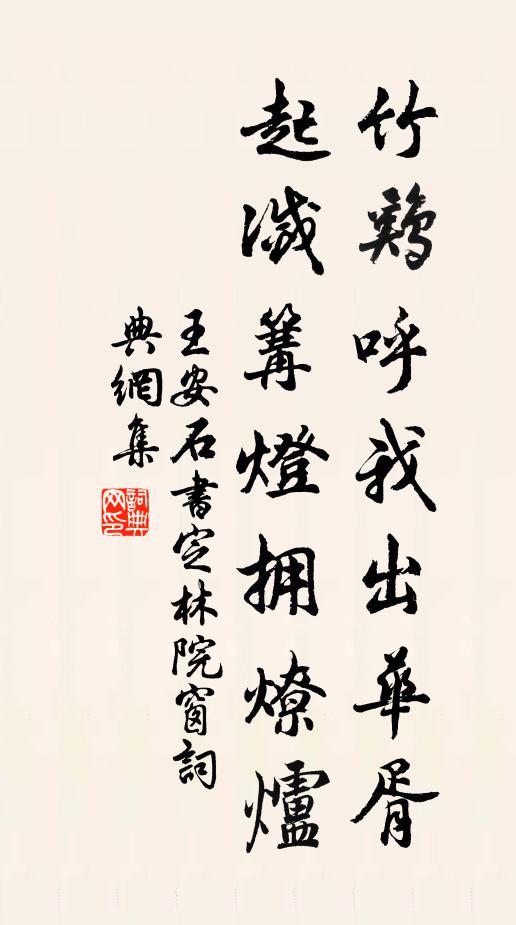 竹鷄呼我出華胥
起滅篝燈擁燎爐
王安石書定林院窗詞
典網集
詞典网印